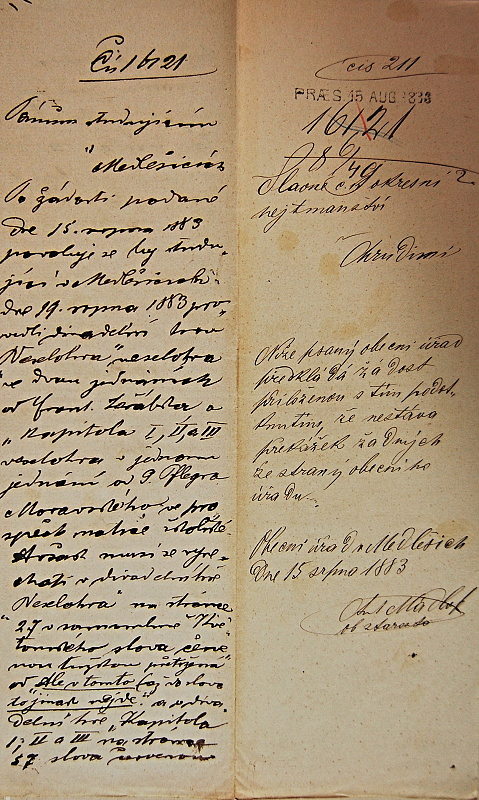 Čís 1621
Pánům studujícím
v Medlešicích
Po žádosti podané
dne 15. srpna 1883
povoluje se by studu-
jící v Medlešicích
dne 19. srpna 1883 pro-
vedli divadelní hru
"Veselohra" veselohra
ve dvou jednáních
od Frant. a
"Kapitola I, II a III
veselohra v jednom
jednání od G. Pflegra
Moravského ve pro-
spěch matice
musí se vyne-
chati v divadelní hře
"Veselohra" na stránce
27 v
slova
od Ale v tomto (až do slova
to jinak nejde." a v diva-
delní hře "Kapitola
I, II a III na stránce
57 slova červenou
čís 211
PRÆS. 15 AUG. 1883
1621
Slavné c. k. okresní
hejtmanství
v Chrudimi
Níže psaný obecní úřad
předkládá žádost
přiloženou s tím podot-
knutím, že nestává
překážek žádných
ze strany obecního
úřadu.
Obecní úřad v Medlešicích
Dne 15 srpna 1883
ob starosta